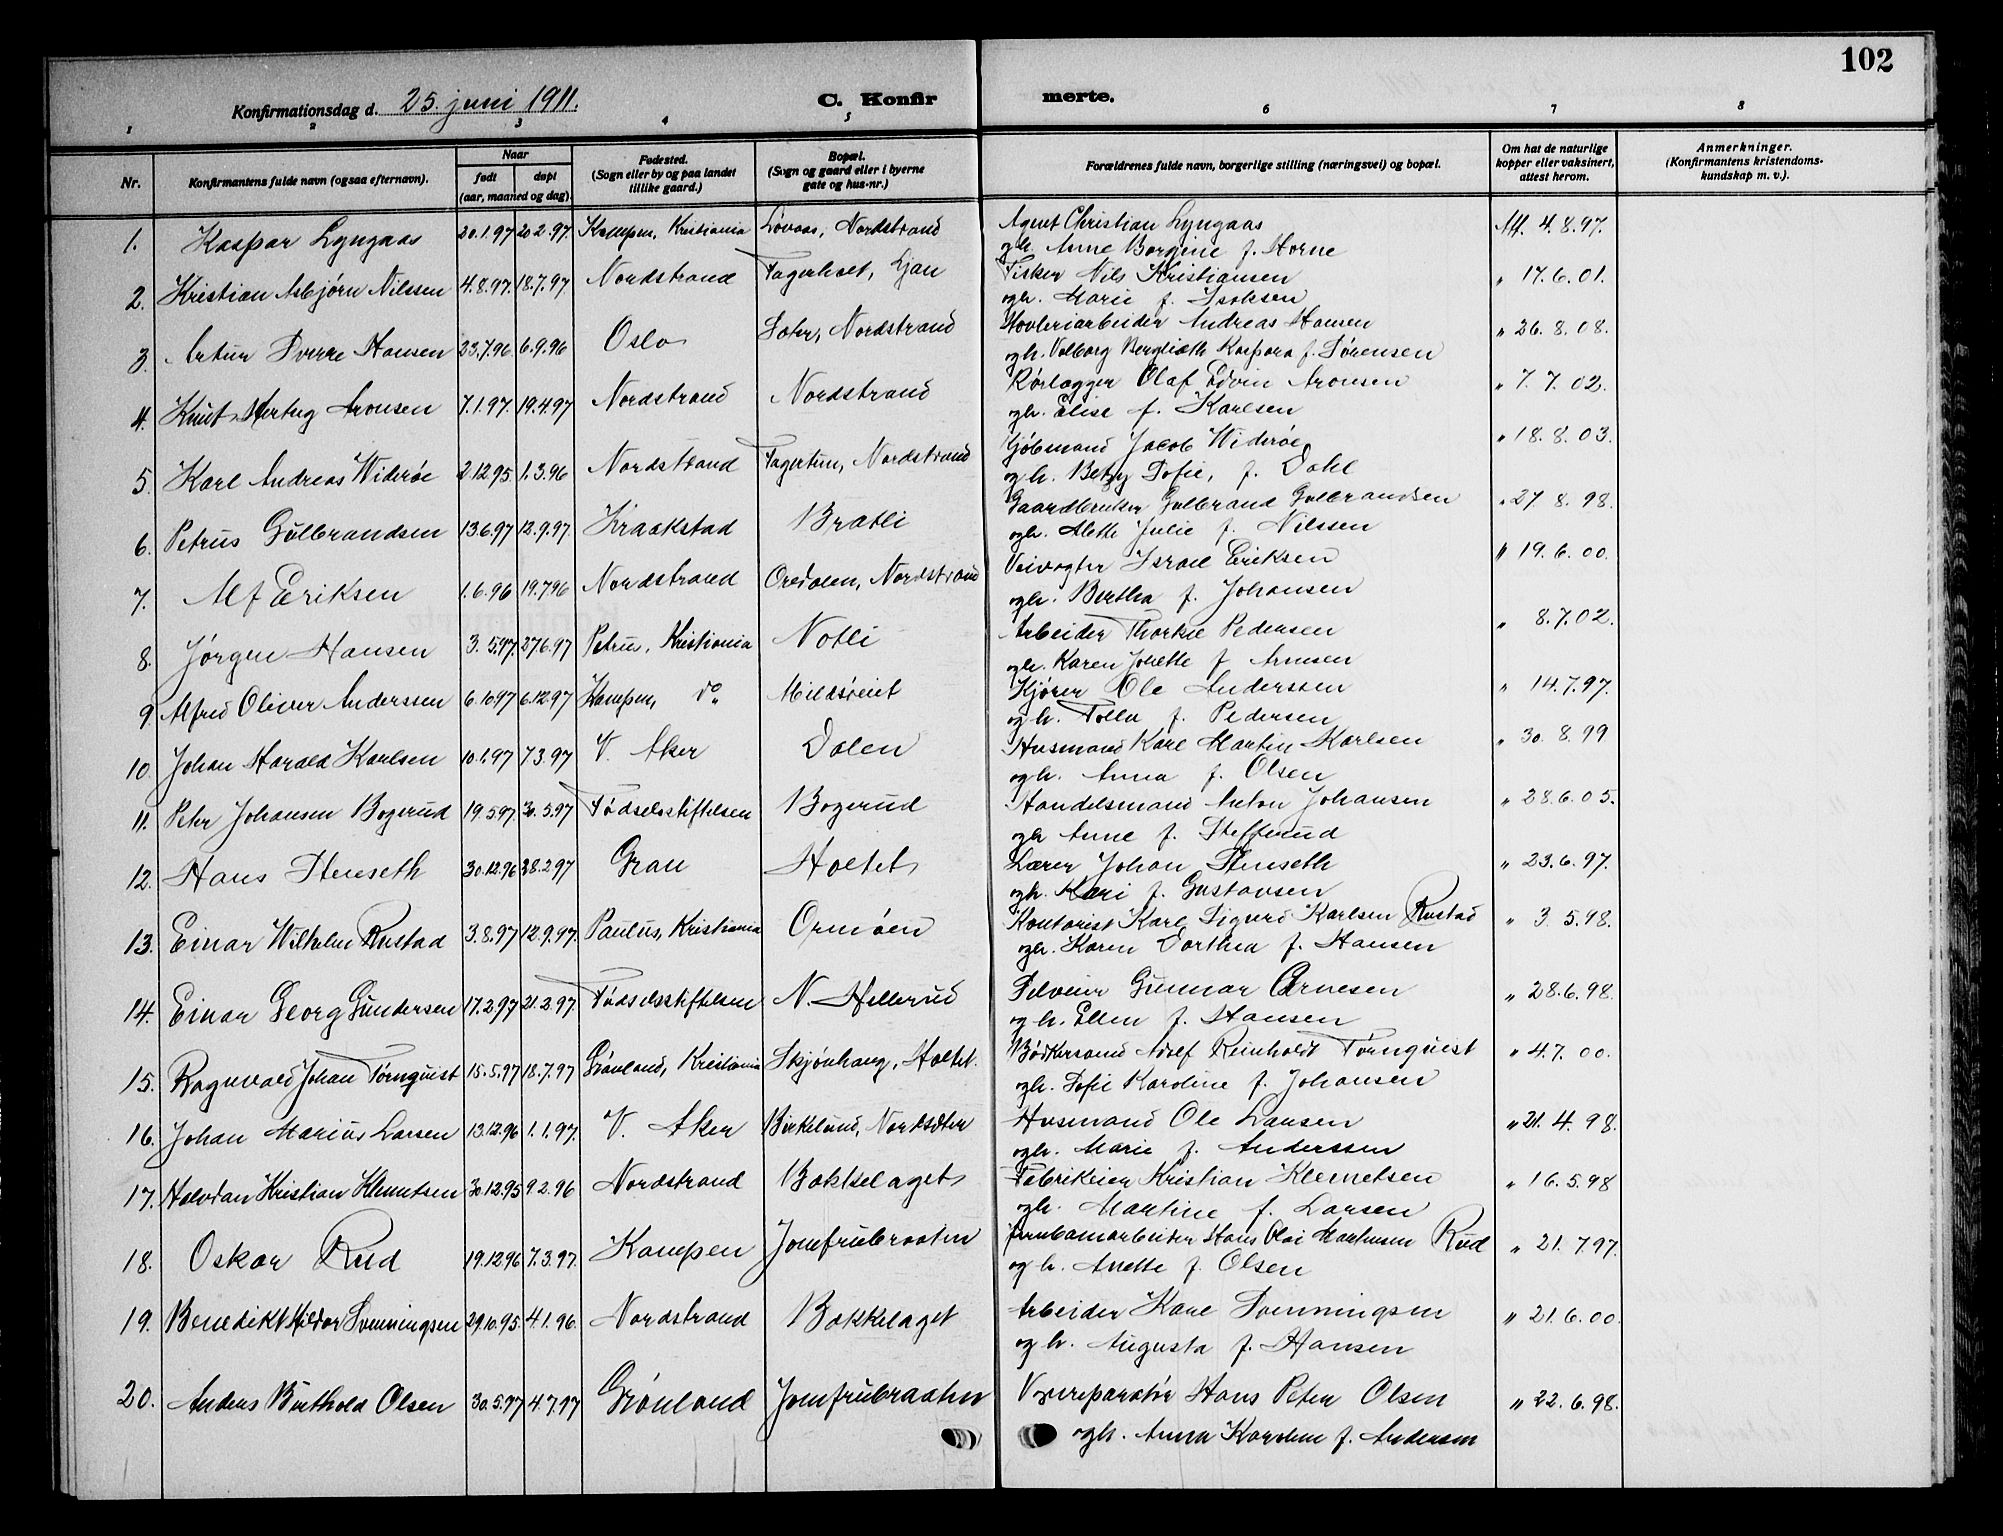 102
Konfirmationsdag d. 25. juni 1911.
C. Konfirmerte.
1 2 3 4 5 6 7 8
Nr. Konfirmantens fulde navn (ogsaa efternavn). Naar født døpt (aar, maaned og dag). Fødested. (Sogn eller by og paa landet tillike gaard.) Bopæl. (Sogn og gaard eller i byerne gate og hus-nr.) Forældrenes fulde navn, borgerlige stilling (næringsvei) og bopæl. Om hat de naturlige kopper eller vaksinert, attest herom. Anmerkninger. (Konfirmantens kristendoms-kundskap m. v.).
1. Kaspar Lyngaas 20.1.97 20.2.97 Kampen, Kristiania Løvaas, Nordstrand Agent Christian Lyngaas Att. 4.8.97.
og h. Anne Borgine f. Horne
2. Kristian Asbjørn Nilssen 4.8.97. 18.7.97 Nordstrand Fagerholt, Ljan Fisker Nils Kristiansen " 17.6.01.
og h. Marie f. Isaksen
3. Artur Sverre Hansen 23.7.96 6.9.96 Oslo Sæter, Nordstrand Høvleriarbeider Andreas Hansen " 26.8.08.
og h. Valborg Bergliæth Kaspara f. Sørensen
4. Knut Hertug Aronsen 7.1.97. 19.4.97 Nordstrand Nordstrand Rørlægger Olaf Edvin Aronsen " 7.7.02.
og h. Elise f. Karlsen
5. Karl Andreas Widerøe 2.12.95 1.3.96 Nordstrand Fagertun, Nordstrand Kjøbmand Jacob Widerøe " 18.8.03.
og h. Betzy Sofie, f. Dahl
6. Petrus Gulbrandsen 13.6.97 12.9.97. Kraakstad Bratli Gaardbruker Gulbrand Gulbrandsen " 27.8.98.
og h. Alette Julie f. Nilssen
7. Alf Eriksen 1.6.96 19.7.96 Nordstrand Oredalen, Nordstrand Veivogter Israel Eriksen " 19.6.00.
og h. Bertha f. Johansen
8. Jørgen Hansen 3.5.97. 27.6.97 Petrus, Kristiania Notli Arbeider Thorkil Pedersen " 8.7.02.
og h. Karen f. Arnesen
9. Alfred Oliver Anderssen 6.10.97 6.12.97 Kampen, do. Kjører Ole Anderssen " 14.7.97.
og h. Tolla f. Pedersen
10. Johan Harald Karlsen 10.1.97 7.3.97 V. Aker Dalen Husmand Karl Martin Karlsen " 30.8.99
og h. Anna f. Olsen
11. Peter Johansen Bogerud 19.5.97 30.5.97 Fødselsstiftelsen Bogerud Handelsmand Anton Johansen " 28.6.05.
og h Anne f. Stefferud
12. Hans Stenseth 30.12.96 28.2.97 Gran Holtet Lærer Johan Stenseth " 23.6.97.
og h. Kari f. Gustavsen
13. Einar Wilhelm Rustad 3.8.97 12.9.97. Paulus, Kristiania Ormøen Kontorist Karl Sigurd Karlsen Rustad " 3.5.98.
og h. Karen Dorthea f. Hansen
14. Einar Georg Gundersen 17.2.97 21.2.97. Fødselsstiftelsen N. Hellerud Selveier Gunnar Arnesen " 28.6.98.
og h. Ellen f. Hansen
15. Ragnvald Johan Tørnquist 15.5.97 18.7.97 Grønland, Kristiania Skjønhaug, Holtet. Bødkersvend Adolf Reinholdt Tørnquist " 4.7.00.
og h. Sofie Karoline f. Johansen
16. Johan Marius Larsen 13.12.96 1.1.97. V. Aker Birkelund, Nordsæter Husmand Ole Larsen " 21.4.98.
og h. Marie f. Anderssen
17. Halvdan Kristian Klemetsen 30.12.95 9.2.96 Nordstrand Bækkelaget Fabrikeier Kristian Klemetsen " 16.5.98
og h. Martine f. Larsen
18. Oskar Rud 19.12.96 7.3.97. Kampen Jomfrubraaten Jernbanearbeider Hans Olai Martinsen Rud " 21.7.97.
og h. Anette f. Olsen
19. Benedikt Hildor Svenningsen 29.10.95. 4.1.96. Nordstrand Bækkelaget Arbeider Karl Svenningsen " 21.6.00.
og h. Augusta f. Hansen
20. Anders Berthold Olsen 30.5.97 4.7.97 Grønland Jomfrubraaten Hans Peter Olsen " 22.6.98.
og h. Anna Karoline f. Andersen